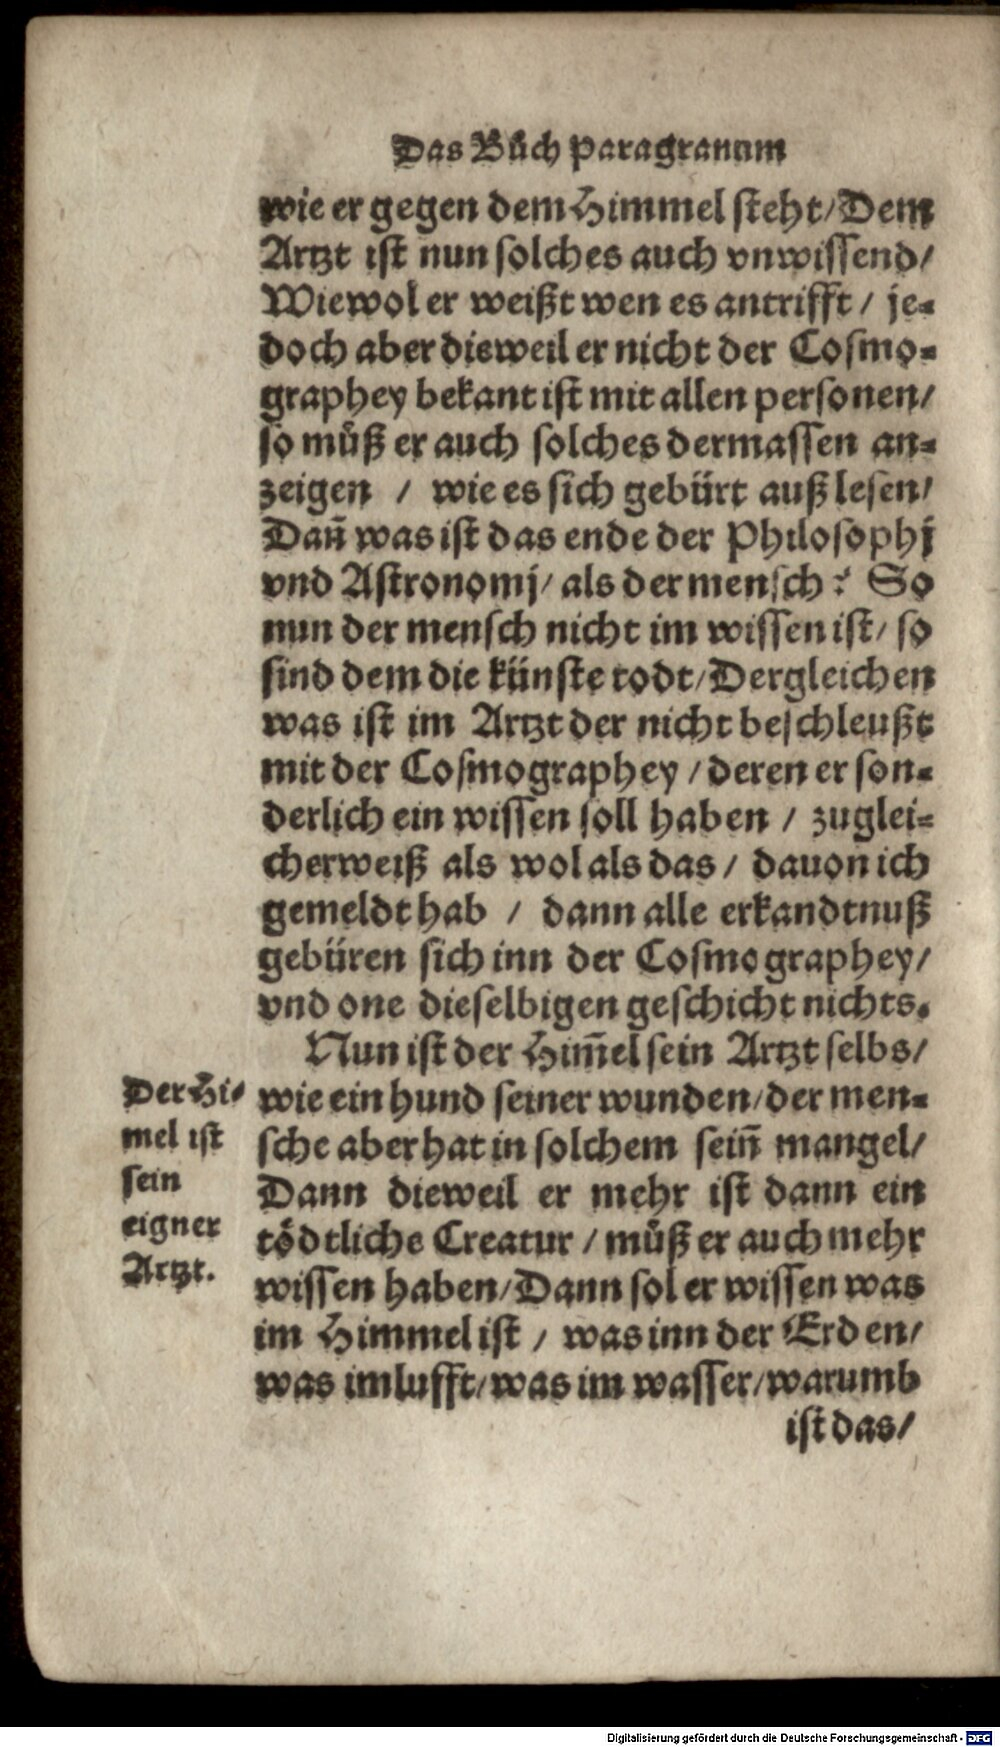 Das Bůch Paragranum
wie er gegen dem Himmel steht/ Dem
Artzt ist nun solches auch vnwissend/
Wiewol er weißt wen es antrifft / je-
doch aber dieweil er nicht der Cosmo-
graphey bekant ist mit allen personen/
so můß er auch solches dermassen an-
zeigen / wie es sich gebürt außlesen/
Dañ was ist das ende der Philosophj
vnd Astronomj/ als der mensch? So
nun der mensch nicht im wissen ist/ so
sind dem die künste todt/ Dergleichen
was ist im Artzt der nicht beschleußt
mit der Cosmographey / deren er son-
derlich ein wissen soll haben / zuglei-
cherweiß als wol als das / dauon ich
gemeldt hab / dann alle erkandtnuß
gebüren sich inn der Cosmographey/
vnd one dieselbigen geschicht nichts.
Nun ist der Him̃el sein Artzt selbs/
wie ein hund seiner wunden/ der men-
sche aber hat in solchem sein̄ mangel/
Dann dieweil er mehr ist dann ein
tödtliche Creatur / můß er auch mehr
wissen haben/ Dann sol er wissen was
im Himmel ist / was inn der Erden/
was im lufft/ was im wasser/ warumb
ist das/
Der Hi-
mel ist
sein
eigner
Artzt.
Digitalisierung gefördert durch die Deutsche Forschungsgemeinschaft - DFG